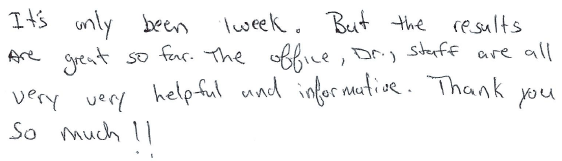 It's only been 1 week. But the results
Are great so far. The office, Dr., staff are all
very very helpful and informative. Thank you
So much!!